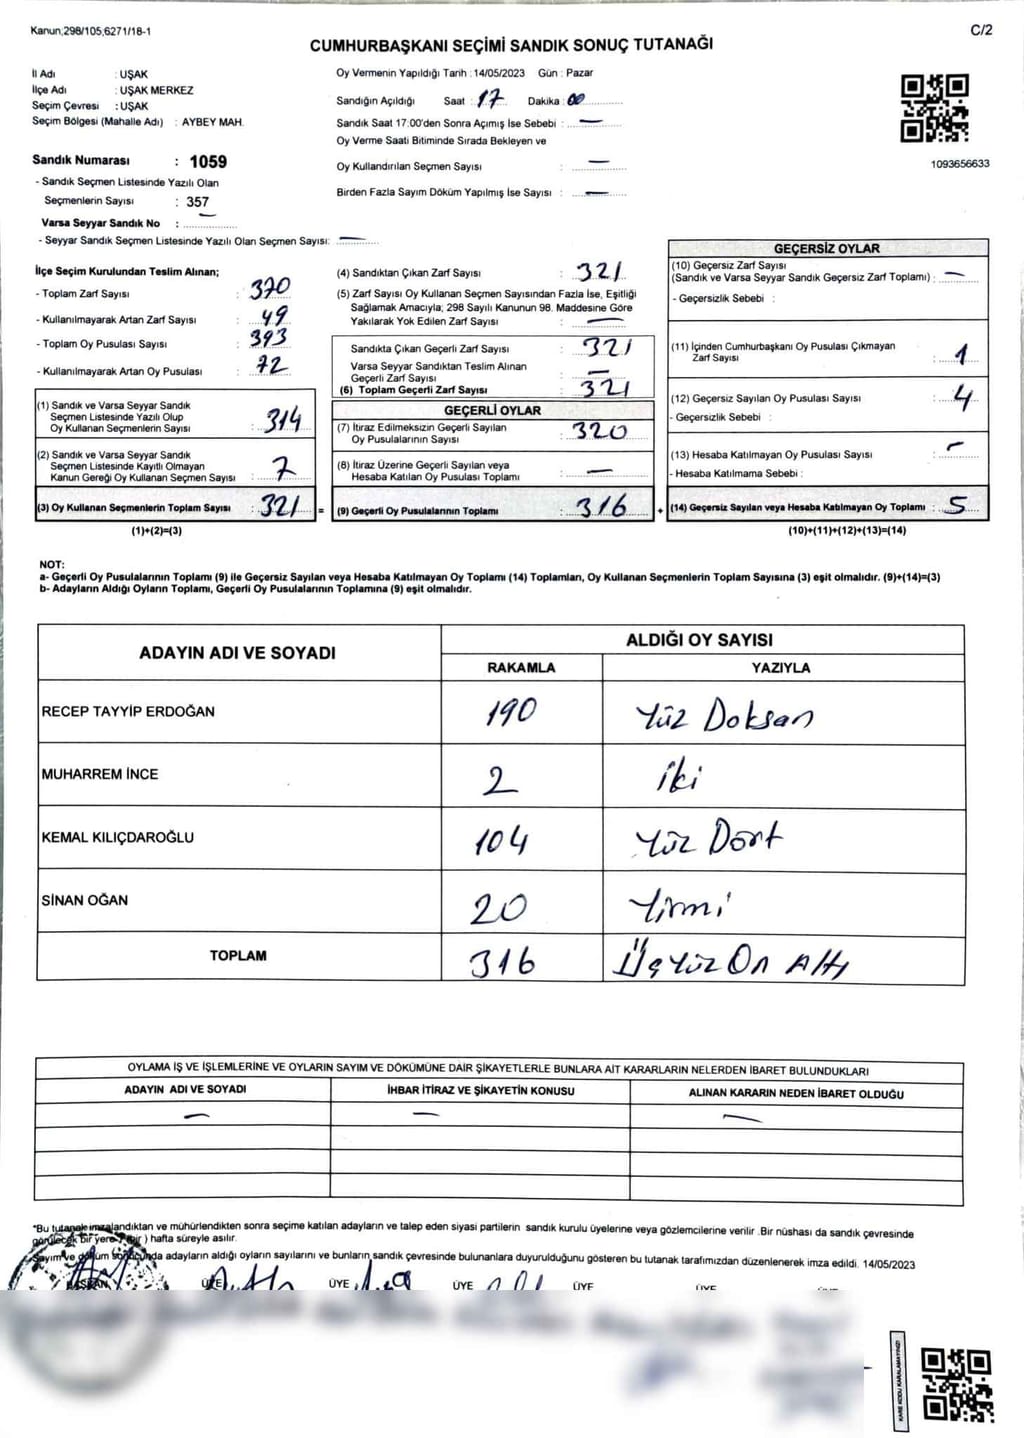 Kanun,298/105,6271/18-1
C/2
CUMHURBAŞKANI SEÇİMİ SANDIK SONUÇ TUTANAĞI
İl Adı : UŞAK
İlçe Adı : UŞAK MERKEZ
Seçim Çevresi : UŞAK
Seçim Bölgesi (Mahalle Adı) : AYBEY MAH.
Sandık Numarası : 1059
- Sandık Seçmen Listesinde Yazılı Olan
Seçmenlerin Sayısı : 357
Varsa Seyyar Sandık No : —
- Seyyar Sandık Seçmen Listesinde Yazılı Olan Seçmen Sayısı: —
Oy Vermenin Yapıldığı Tarih : 14/05/2023 Gün : Pazar
Sandığın Açıldığı Saat : 17 Dakika : 00
Sandık Saat 17:00'den Sonra Açımış İse Sebebi : —
Oy Verme Saati Bitiminde Sırada Bekleyen ve
Oy Kullandırılan Seçmen Sayısı : —
Birden Fazla Sayım Döküm Yapılmış İse Sayısı : —
1093656633
İlçe Seçim Kurulundan Teslim Alınan;
- Toplam Zarf Sayısı : 370
- Kullanılmayarak Artan Zarf Sayısı : 49
- Toplam Oy Pusulası Sayısı : 393
- Kullanılmayarak Artan Oy Pusulası : 72
(1) Sandık ve Varsa Seyyar Sandık
Seçmen Listesinde Yazılı Olup
Oy Kullanan Seçmenlerin Sayısı : 314
(2) Sandık ve Varsa Seyyar Sandık
Seçmen Listesinde Kayıtlı Olmayan
Kanun Gereği Oy Kullanan Seçmen Sayısı : 7
(3) Oy Kullanan Seçmenlerin Toplam Sayısı : 321 =
(1)+(2)=(3)
(4) Sandıktan Çıkan Zarf Sayısı : 321
(5) Zarf Sayısı Oy Kullanan Seçmen Sayısından Fazla İse, Eşitliği
Sağlamak Amacıyla; 298 Sayılı Kanunun 98. Maddesine Göre
Yakılarak Yok Edilen Zarf Sayısı : —
Sandıkta Çıkan Geçerli Zarf Sayısı : 321
Varsa Seyyar Sandıktan Teslim Alınan
Geçerli Zarf Sayısı : —
(6) Toplam Geçerli Zarf Sayısı : 321
GEÇERLİ OYLAR
(7) İtiraz Edilmeksizin Geçerli Sayılan
Oy Pusulalarının Sayısı : 320
(8) İtiraz Üzerine Geçerli Sayılan veya
Hesaba Katılan Oy Pusulası Toplamı : —
(9) Geçerli Oy Pusulalarının Toplamı : 316 +
GEÇERSİZ OYLAR
(10) Geçersiz Zarf Sayısı
(Sandık ve Varsa Seyyar Sandık Geçersiz Zarf Toplamı) : —
- Geçersizlik Sebebi :
(11) İçinden Cumhurbaşkanı Oy Pusulası Çıkmayan
Zarf Sayısı : 1
(12) Geçersiz Sayılan Oy Pusulası Sayısı : 4
- Geçersizlik Sebebi :
(13) Hesaba Katılmayan Oy Pusulası Sayısı : —
- Hesaba Katılmama Sebebi :
(14) Geçersiz Sayılan veya Hesaba Katılmayan Oy Toplamı : 5
(10)+(11)+(12)+(13)=(14)
NOT:
a- Geçerli Oy Pusulalarının Toplamı (9) ile Geçersiz Sayılan veya Hesaba Katılmayan Oy Toplamı (14) Toplamları, Oy Kullanan Seçmenlerin Toplam Sayısına (3) eşit olmalıdır. (9)+(14)=(3)
b- Adayların Aldığı Oyların Toplamı, Geçerli Oy Pusulalarının Toplamına (9) eşit olmalıdır.
ADAYIN ADI VE SOYADI ALDIĞI OY SAYISI
RAKAMLA YAZIYLA
RECEP TAYYİP ERDOĞAN 190 Yüz Doksan
MUHARREM İNCE 2 iki
KEMAL KILIÇDAROĞLU 104 Yüz Dört
SİNAN OĞAN 20 Yirmi
TOPLAM 316 Üç Yüz On Altı
OYLAMA İŞ VE İŞLEMLERİNE VE OYLARIN SAYIM VE DÖKÜMÜNE DAİR ŞİKAYETLERLE BUNLARA AİT KARARLARIN NELERDEN İBARET BULUNDUKLARI
ADAYIN ADI VE SOYADI İHBAR İTİRAZ VE ŞİKAYETİN KONUSU ALINAN KARARIN NEDEN İBARET OLDUĞU
— — —
*Bu tutanak imzalandıktan ve mühürlendikten sonra seçime katılan adayların ve talep eden siyasi partilerin sandık kurulu üyelerine veya gözlemcilerine verilir .Bir nüshası da sandık çevresinde
görülecek bir yere 1 (bir ) hafta süreyle asılır.
Sayım ve döküm sonucunda adayların aldığı oyların sayılarını ve bunların sandık çevresinde bulunanlara duyurulduğunu gösteren bu tutanak tarafımızdan düzenlenerek imza edildi. 14/05/2023
BAŞKAN ÜYE ÜYE ÜYE ÜYE ÜYE
KARE KODU KARALAMAYINIZ!